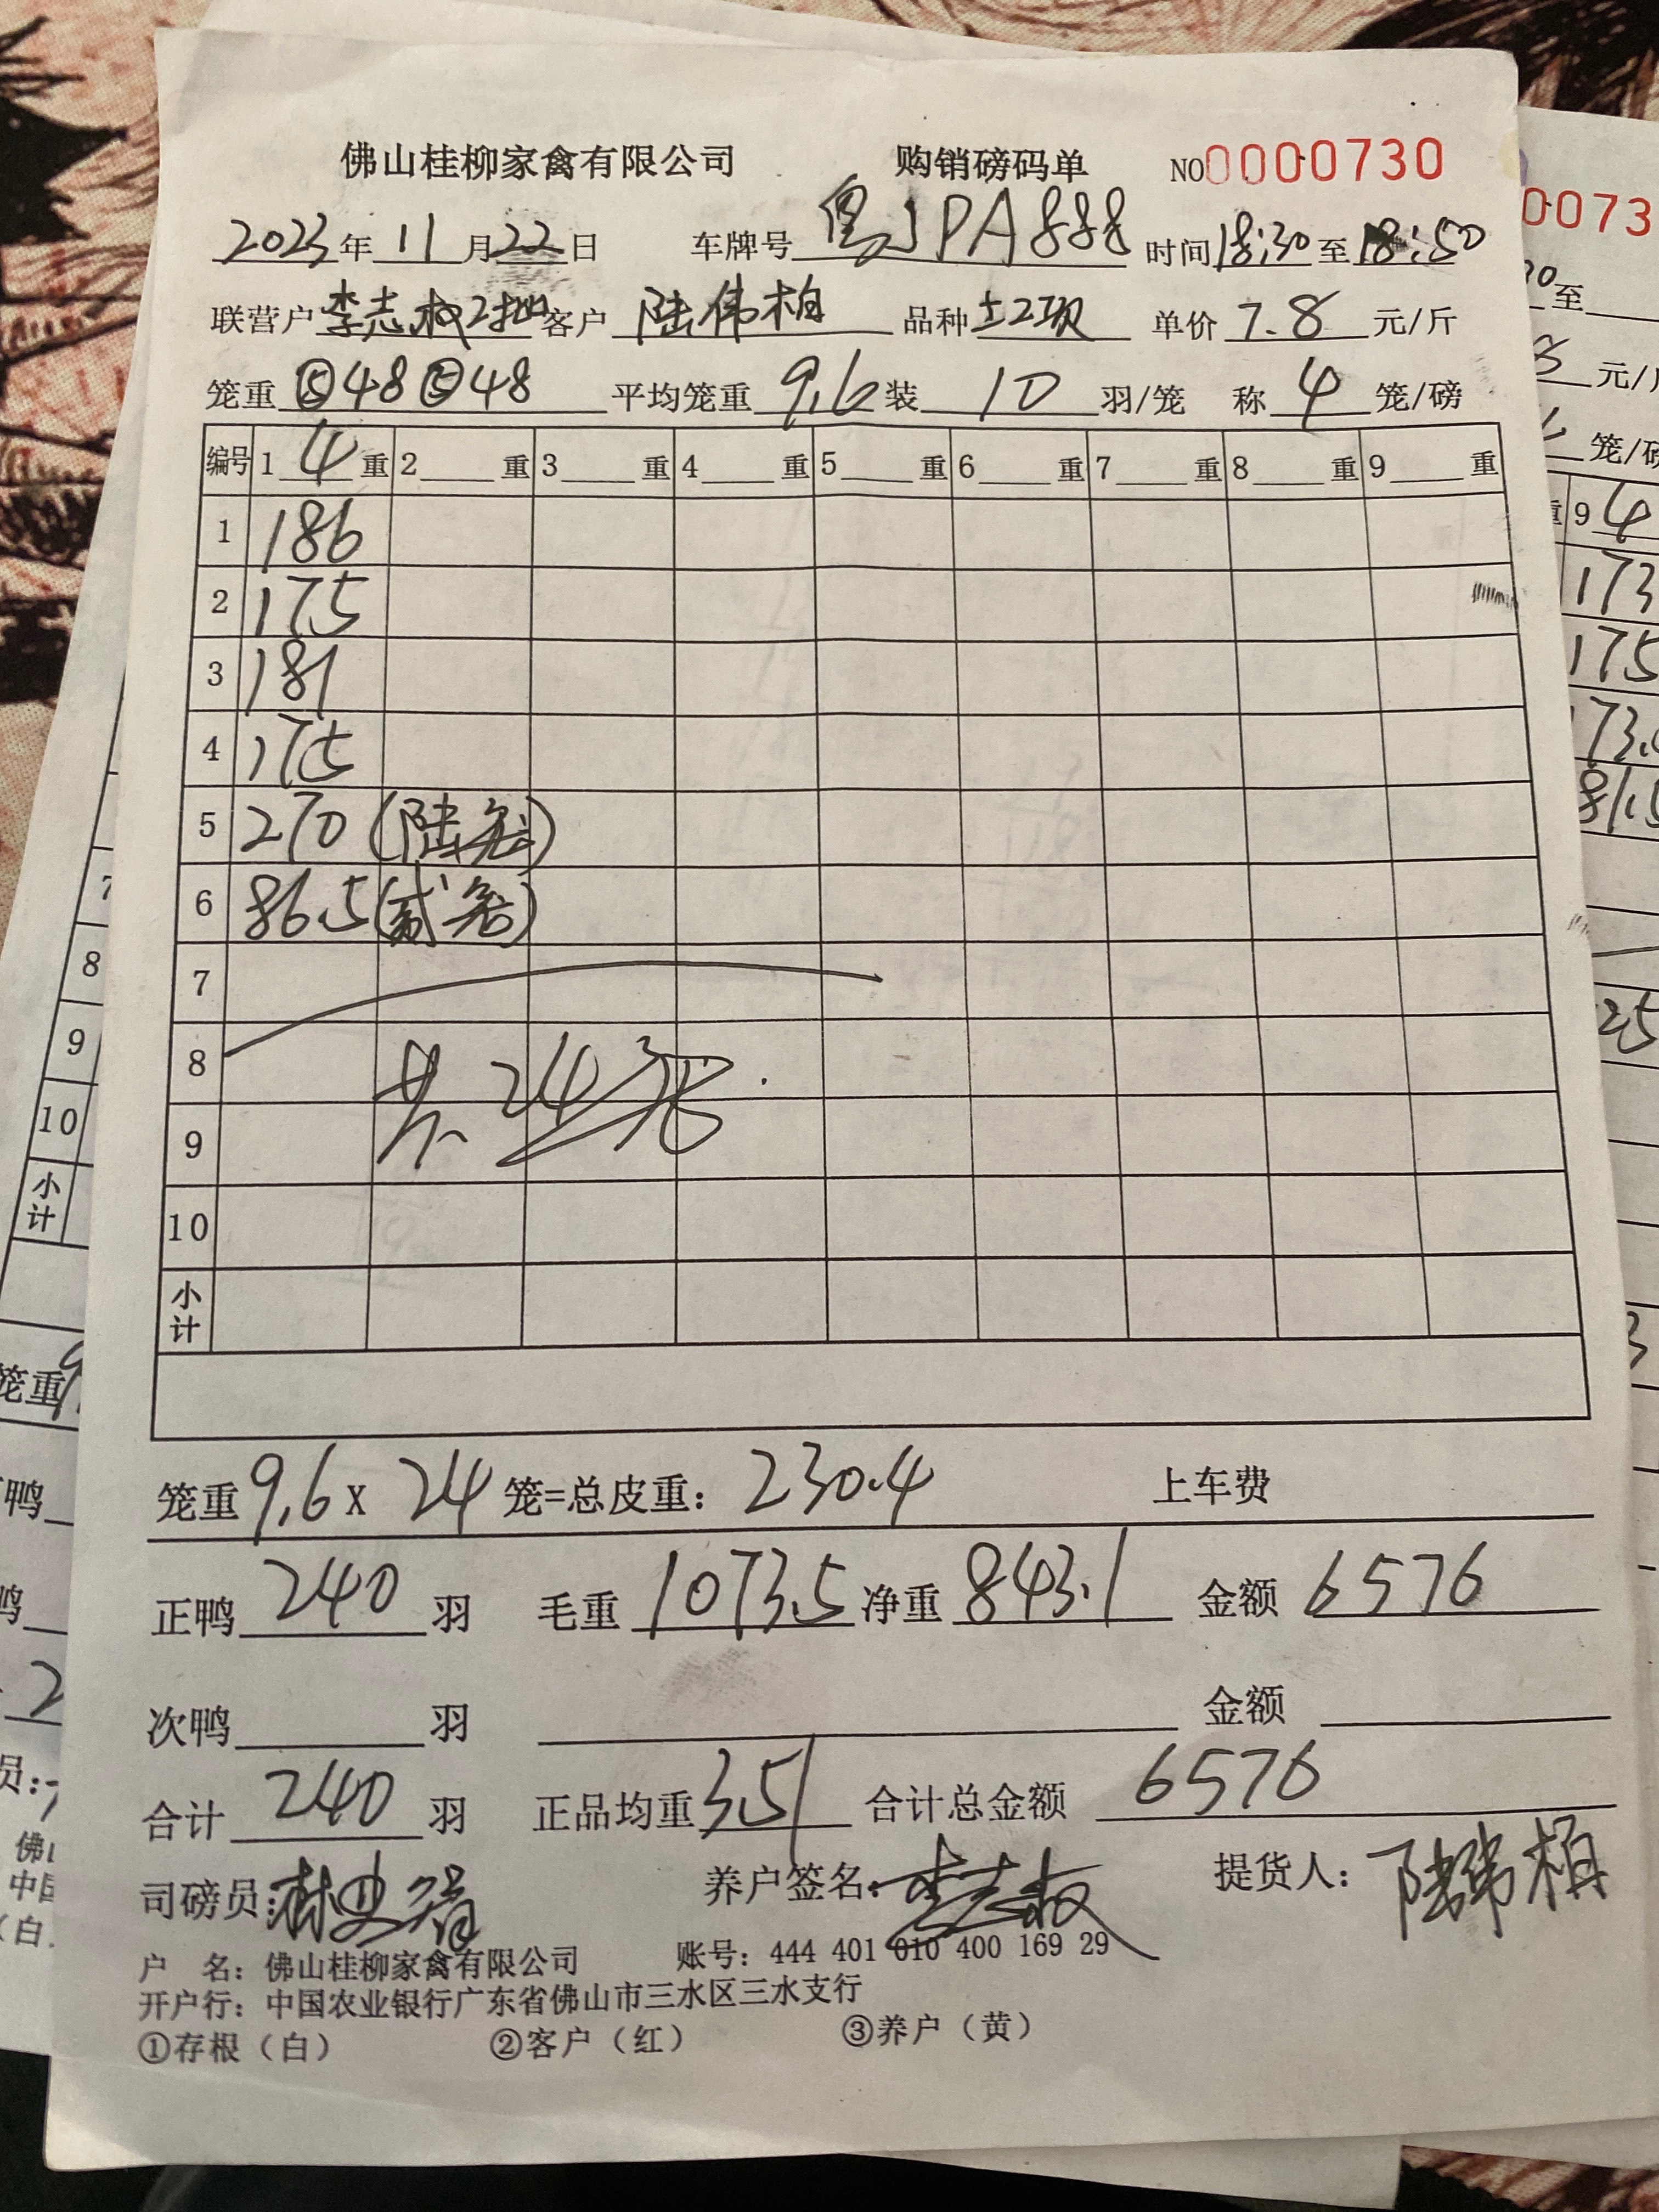 佛山桂柳家禽有限公司 购销磅码单 NO0000730
2023年11月22日 车牌号 粤JPA888 时间18:30至18:50
联营户李志权2批 客户 陆伟柏 品种土2项 单价7.8元/斤
笼重⑤48⑤48 平均笼重9.6装10羽/笼 称4笼/磅
编号 1 4 重 2 重 3 重 4 重 5 重 6 重 7 重 8 重 9 重
1 186
2 175
3 181
4 175
5 270(陆笼)
6 86.5(贰笼)
7
8 共24笼
9
10
小计
笼重9.6X 24笼=总皮重:230.4 上车费
正鸭240羽 毛重1073.5净重843.1 金额6576
次鸭 羽 金额
合计240羽 正品均重3.51 合计总金额6576
司磅员: 养户签名:李志权 提货人:陆伟柏
户 名:佛山桂柳家禽有限公司 账号:444 401 010 400 169 29
开户行:中国农业银行广东省佛山市三水区三水支行
①存根(白) ②客户(红) ③养户(黄)
0073
30至
元/
笼/磅
重 9 4
173
175
81.5
25
7
8
9
10
小计
笼重
鸭